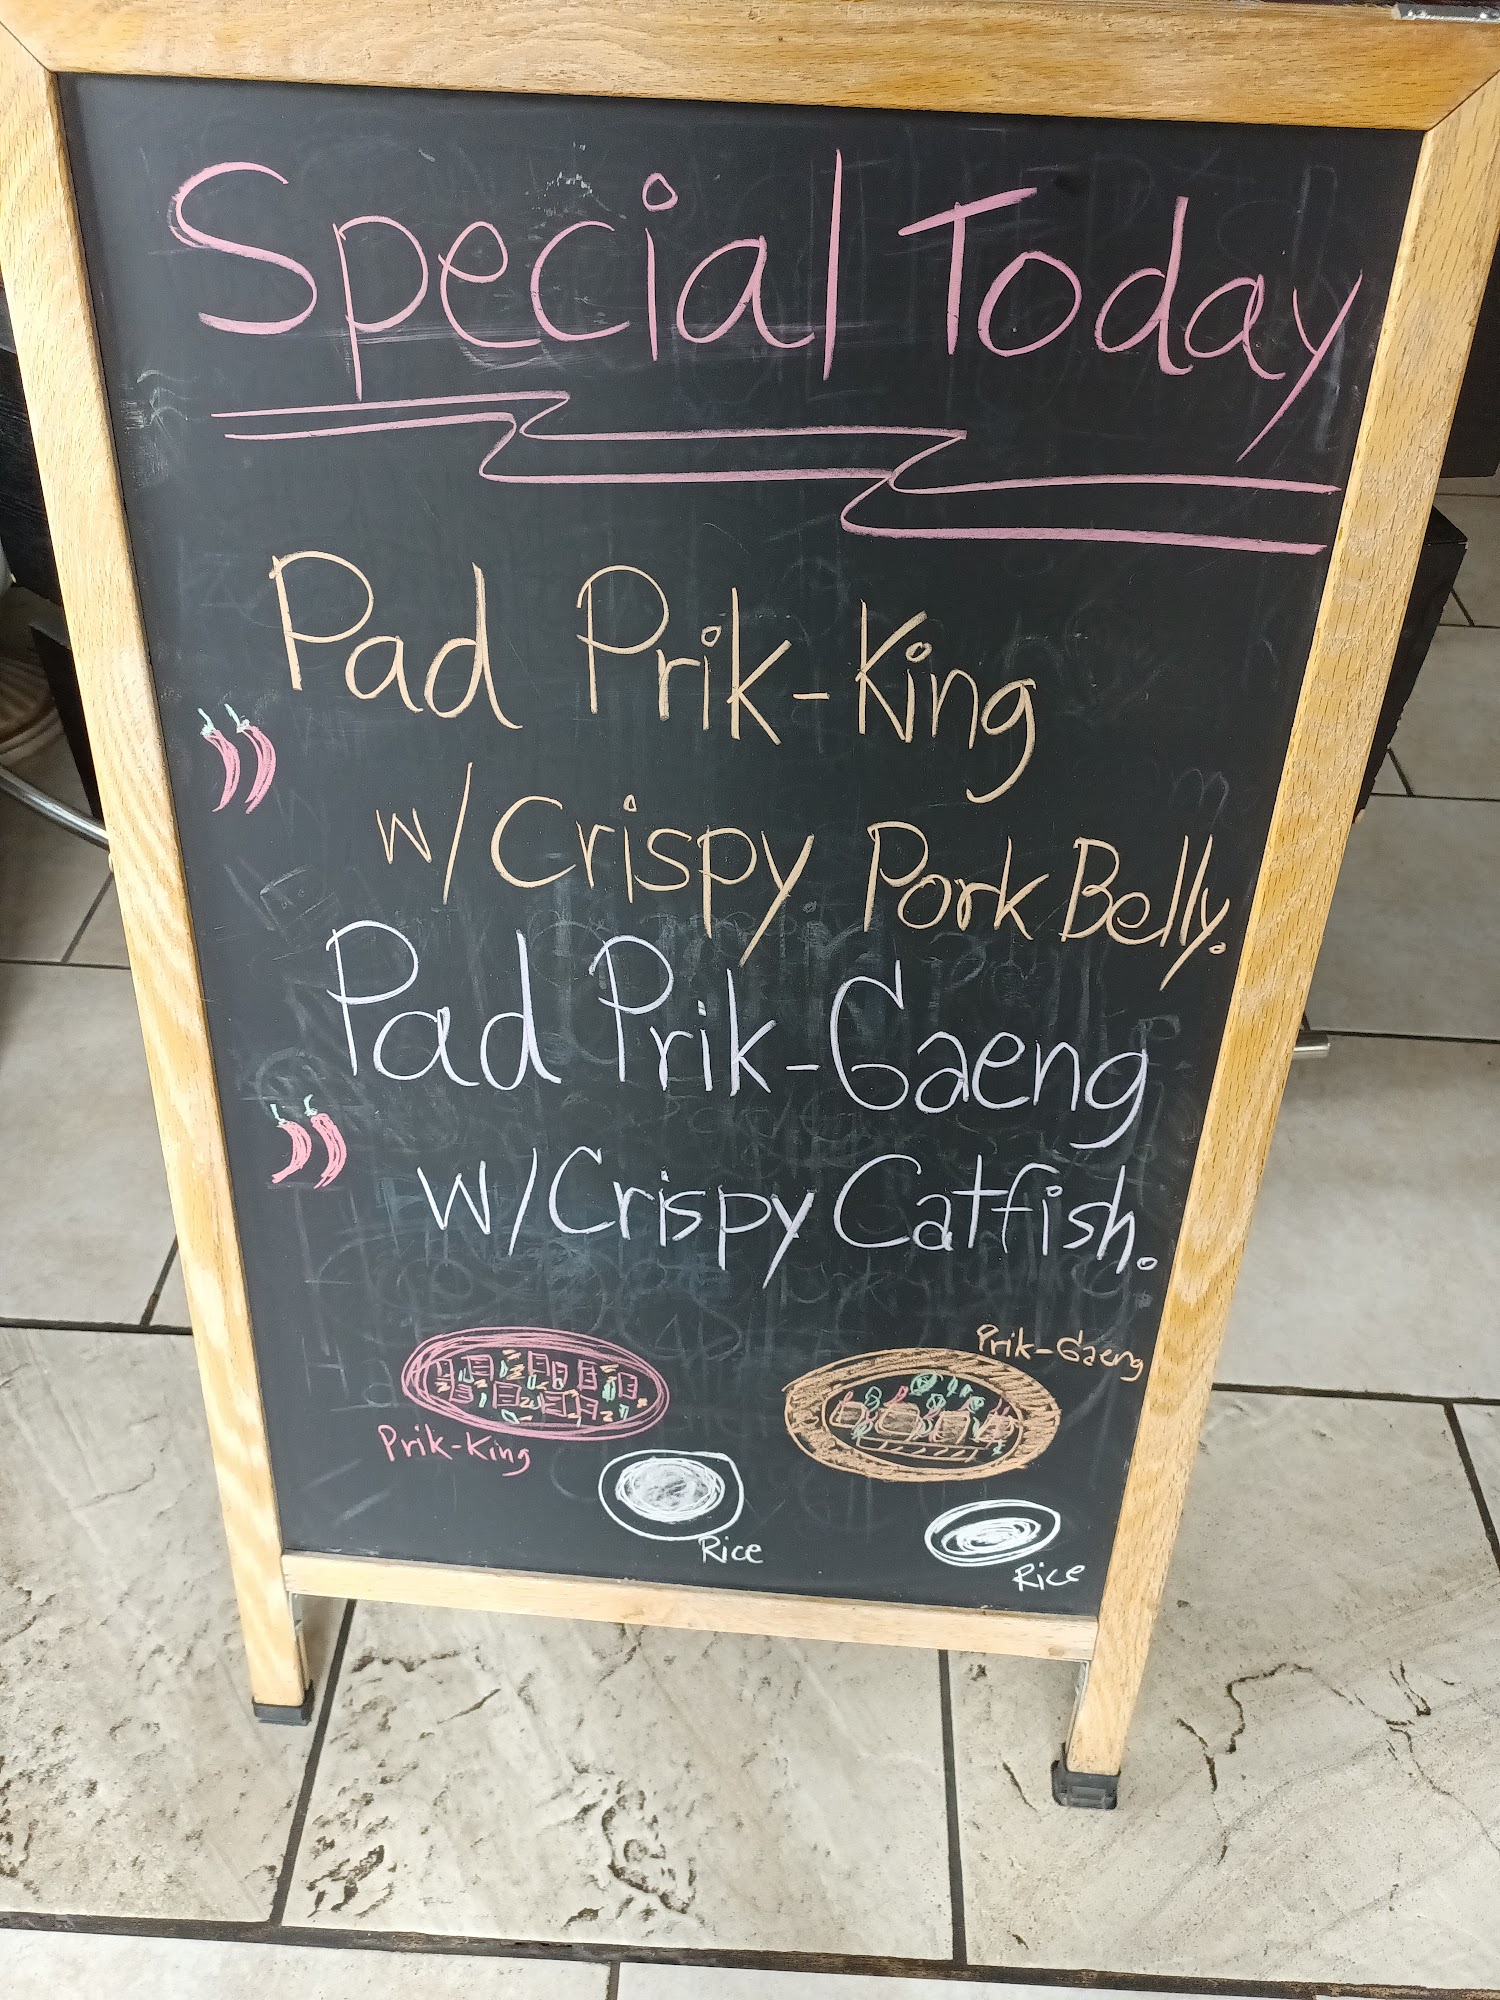 Special Today
Pad Prik-King
w/Crispy Pork Belly.
Pad Prik-Gaeng
w/Crispy Catfish.
Prik-Gaeng
Prik-King
Rice
Rice